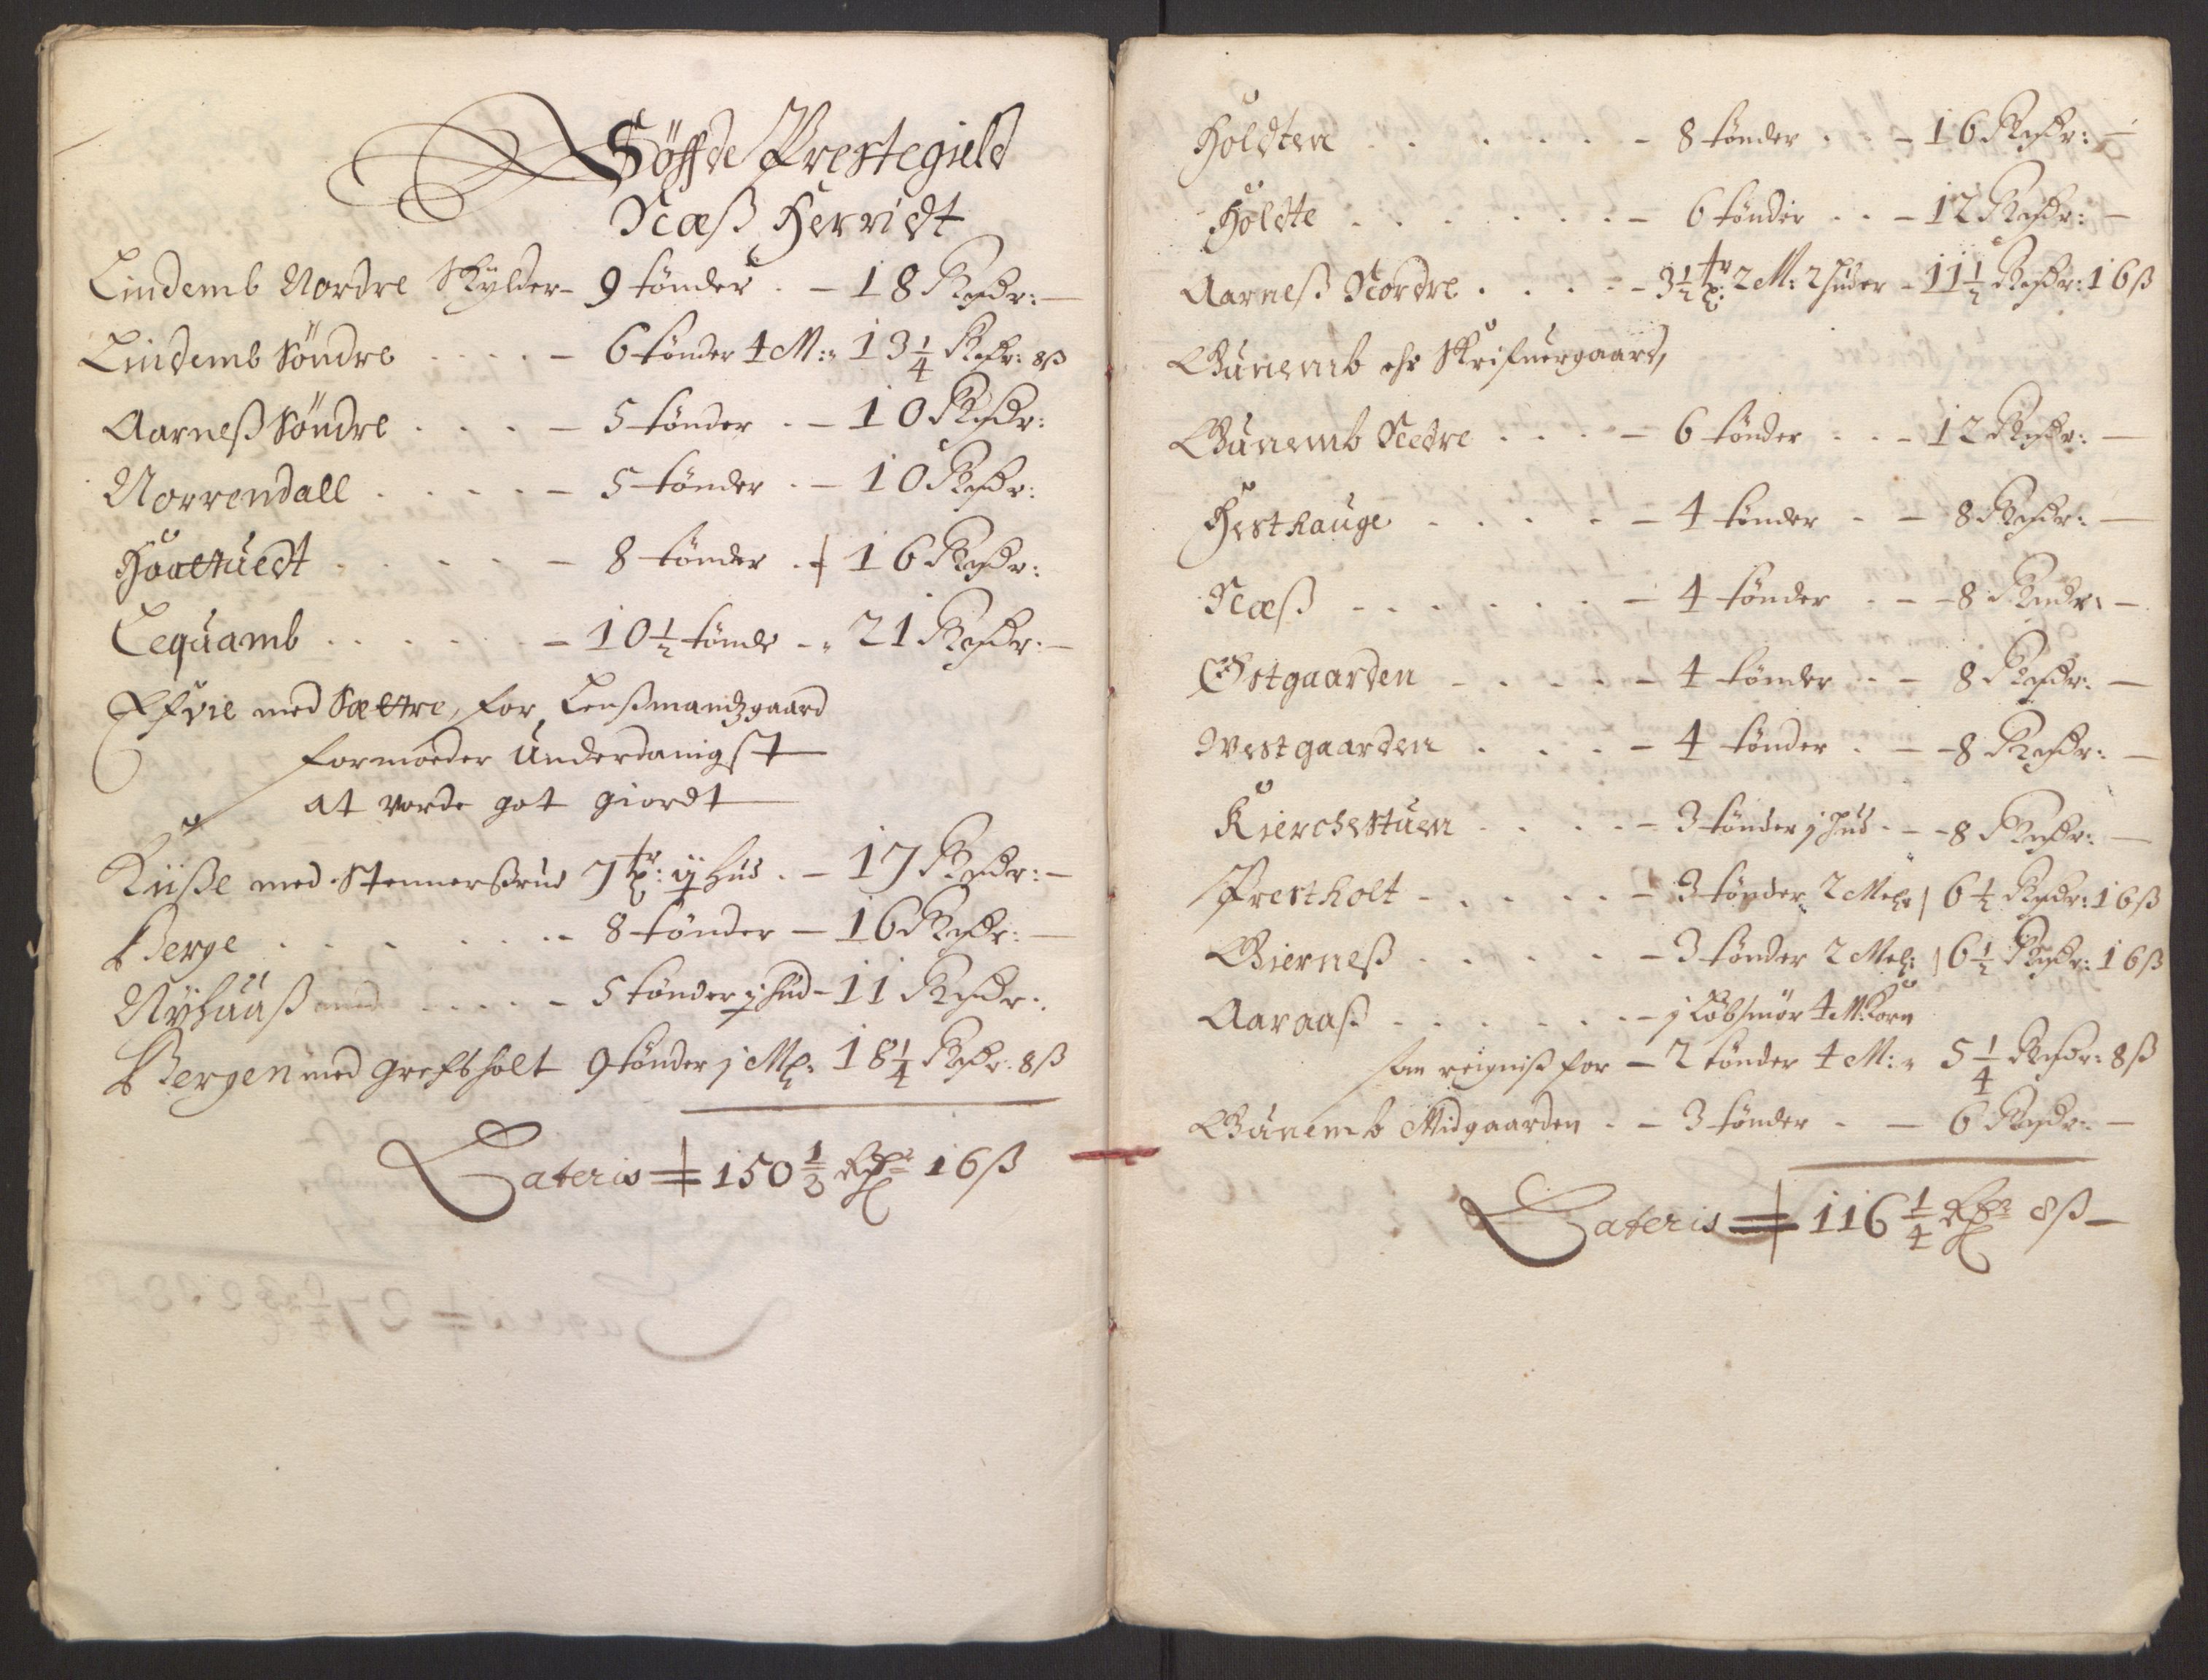 Söffde Prestegield
Næß Herridt
Lindemb Nordre Skylder - 9 tønder . - 18 Rixdr: -
Lindemb Söndre . . . . - 6 tønder 4 M: - 13 1/4 Rixdr: 8ß
Aarneß Söndre . . . . - 5 tønder . - 10 Rixdr:
Norrendall . . . . - 5 tønder . - 10 Rixdr:
Haatuedt . . . . - 8 tønder . - 16 Rixdr:
Lequamb . . . . . - 10 1/2 tønde - 21 Rixdr: -
Efvie med Sættre, for Lenßmandzgaard
formoeder Underdanigst
at vorde got giordt
Kiiße med Stennerßrud 7 tr: ij Hud . - 17 Rixdr: -
Berge . . . . . . - 8 tønder - 16 Rixdr: -
Nÿhuuß . . . . - 5 tønder j Hud - 11 Rixdr:
Bergen med Grefsholt 9 tønder j Ml: 18 1/4 Rixdr: 8ß
Lateris = 150 1/2 Rdr 16ß
Holdten . . . . . . - 8 tønder . . - 16 Rixdr: -
Holdte . . . . . . . - 6 tønder . . - 12 Rixdr: -
Aarneß Nordre . . . . - 3 1/2 tr: 2 M: 2 Huder - 11 1/2 Rixdr: 16ß
Gunemb ehr Skrifuergaard,
Gunemb Nedre . . . - 6 tønder . . - 12 Rixdr: -
Hesthauge . . . . . - 4 tønder . - 8 Rixdr: -
Næß . . . . . . . - 4 tønder . - 8 Rixdr: -
Østgaarden . . . . . - 4 tønder . - 8 Rixdr: -
Westgaarden . . . . - 4 tønder . - 8 Rixdr: -
Kierchestuen . . . . - 3 tønder j Hud . - 8 Rixdr: -
Prestholt . . . . . - 3 tønder 2 Mel: 6 1/2 Rixdr: 16ß
Gierneß . . . . . - 3 tønder 2 Mel: 6 1/2 Rixdr: 16ß
Aaraaß . . . . . . - j Løbsmør 4 M: Korn
som reigniß for - 2 tønder 4 M: - 5 1/4 Rixdr: 8ß
Gunemb Midgaarden . - 3 tønder . - 6 Rixdr: -
Lateris = 116 1/4 Rdr 8ß -